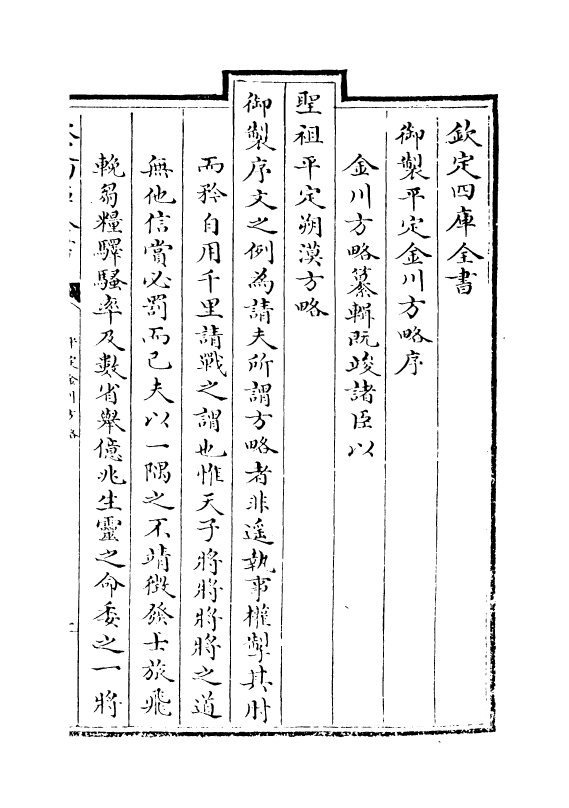 欽定四庫全書
御製平定金川方略序
金川方略纂輯既竣諸臣以
聖祖平定朔漠方略
御製序文之例為請夫所謂方略者非遥執事權掣其肘
而矜自用千里請戰之謂也惟天子將將將將之道
無他信賞必罰而已夫以一隅之不靖徴發士旅飛
輓芻糧驛騷率及數省舉億兆生靈之命委之一將
平定金川方略